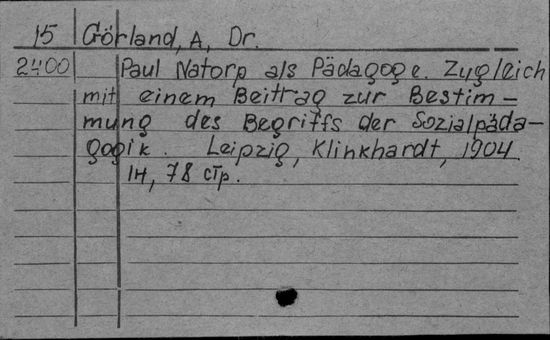 15 Görland, A, Dr.
2400 Paul Natorp als Pädagoge. Zugleich
mit einem Beitrag zur Bestim-
mung des Begriffs der Sozialpäda-
gogik. Leipzig, Klinkhardt, 1904.
IH, 78 стр.